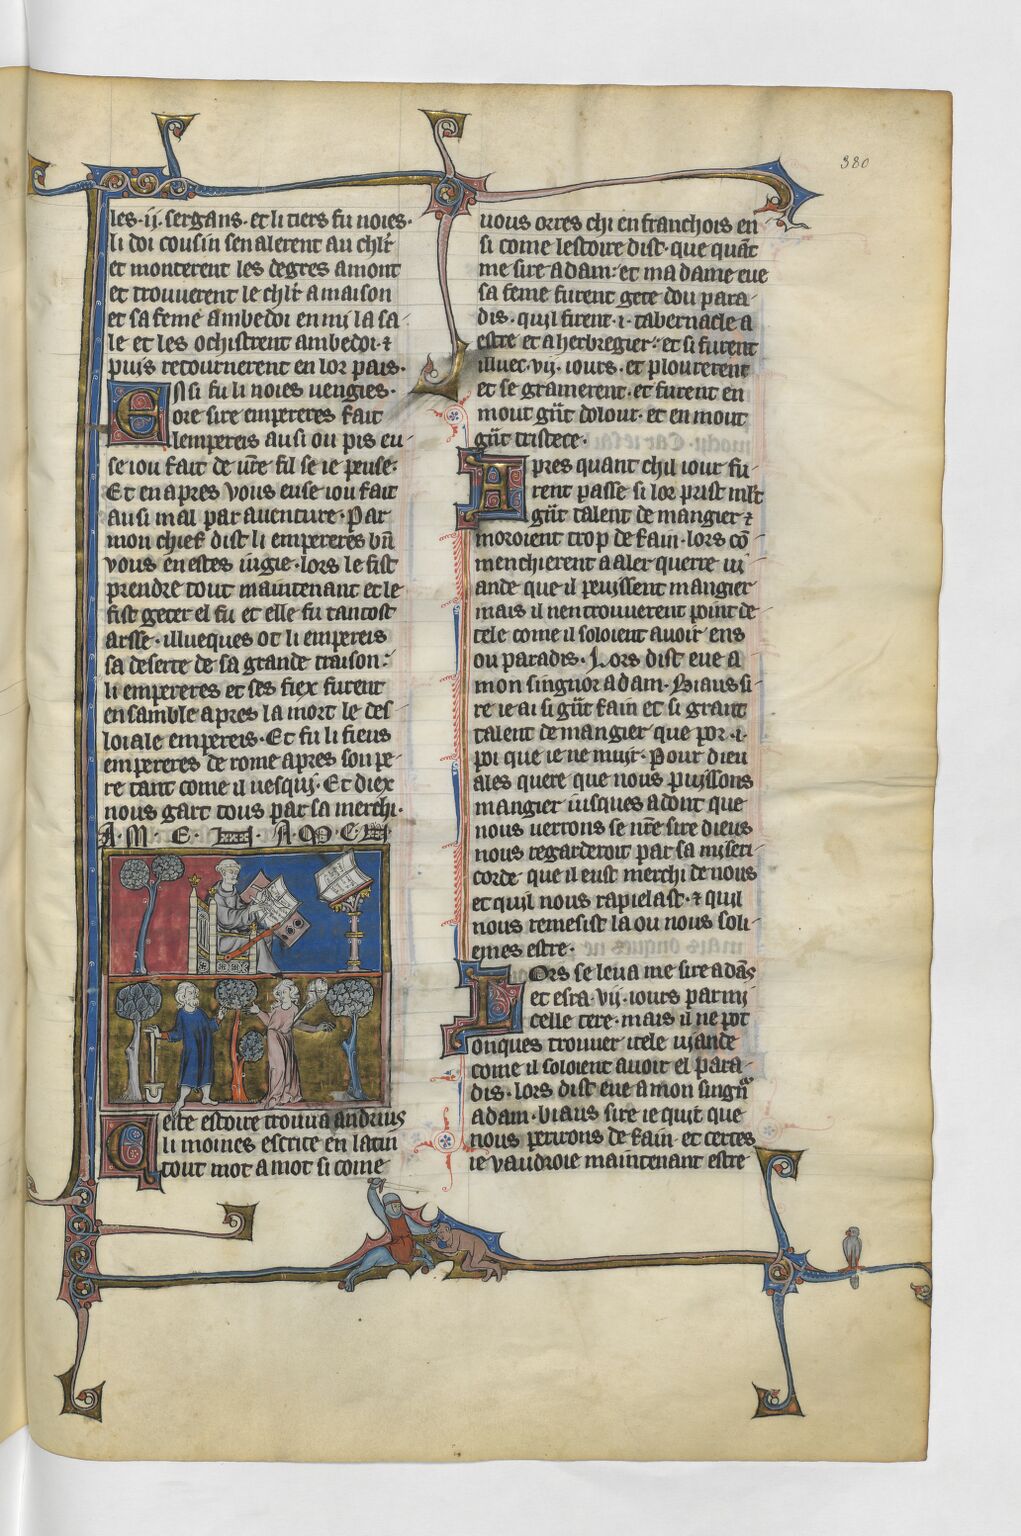 380
les .ij. sergans. et li tiers fu noies.
li doi cousin sen alerent au chlr̄
et monterent les degres amont
et trouuerent le chlr̄ a maison
et sa feme ambedoi en mi la sa-
le et les ochistrent ambedoi. ⁊
puis retournerent en lor pais.
Ensi fu li noies uengies.
ore sire empereres fait
lempereis ausi ou pis eu-
se iou fait de ur̄e fil se ie peuse.
Et en apres vous euse iou fait
ausi mal par auenture. Par
mon chief dist li empereres bn̄
vous en estes iugie. lors le fist
prendre tout maintenant et le
fist geter el fu et elle fu tantost
arsse. illueques ot li empereis
sa deserte de sa grande traison.
li empereres et ses fiex furent
ensamble apres la mort le des-
loiale empereis. Et fu li fieus
empereres de rome apres son pe-
re tant come il uesqui. Et diex
nous gart tous par sa merchi.
A. M. E. . A M E
Ceste estoire trouua andrius
li moines escrite en latin
tout mot a mot si come
uous orres chi en franchois en
si come lestoire dist. que quāt
me sire adam. et ma dame eue
sa feme furent gete dou para-
dis. quil firent .i. tabernacle a
estre et a herbregier. et si furent
illuec .vij. iours. et plourerent
et se gramerent. et furent en
mout gr̄t dolour. et en mout
gr̄t tristece.
Apres quant chil iour fu-
rent passe si lor prist ml̄t
gr̄t talent de mangier ⁊
moroient trop de fain. lors cō-
menchierent a aler querre ui-
ande que il peuissent mangier
mais il nen trouuerent point de
tele come il soloient auoir ens
ou paradis. Lors dist eue a
mon singnor adam. Biaus si-
re ie ai si gr̄t fain et si grant
talent de mangier que por .i.
poi que ie ne muir. Pour dieu
ales quere que nous puissons
mangier iusques adont que
nous uerrons se nr̄e sire dieus
nous regarderoit par sa miseri-
corde que il eust merchi de nous
et quil nous rapielast. ⁊ quil
nous remesist la ou nous soli-
emes estre.
Lors se leua me sire adās
et esra .vij. iours parmi
celle tere. mais il ne pot
onques trouuer itele uiande
come il soloient auoir el para-
dis. lors dist eue a mon singnr̄
adam. biaus sire ie quit que
nous perirons de fain. et certes
ie vaudroie maintenant estre